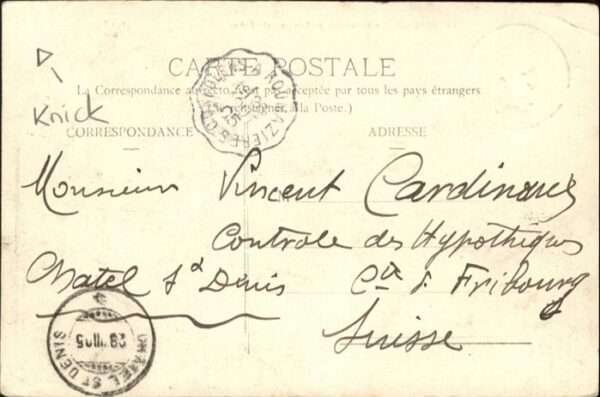 CARTE POSTALE
La Correspondance au recto n'est pas acceptée par tous les pays étrangers
(Se renseigner à la Poste.)
Knick
CORRESPONDANCE
ADRESSE
Monsieur Vincent Cardinaux
Controle des Hypothèques
Chatel St Denis Ct d. Fribourg
Suisse
CHATEL ST DENIS